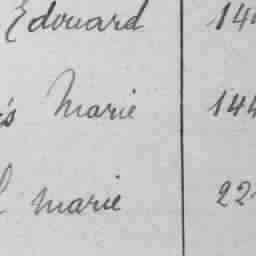 Edouard 14
Marie 144
marie 22